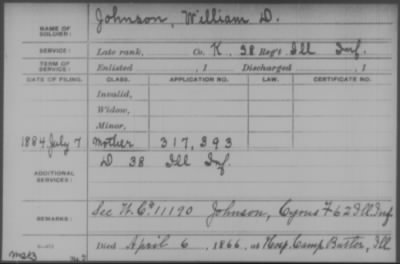 NAME OF SOLDIER: Johnson, William D.
SERVICE: Late rank, Co. K, 38 Reg't Ill Inf.
TERM OF SERVICE: Enlisted , 1 Discharged , 1
DATE OF FILING. CLASS. APPLICATION NO. LAW. CERTIFICATE NO.
Invalid,
Widow,
Minor,
1884 July 7 Mother 317,393
ADDITIONAL SERVICES: D 38 Ill Inf.
REMARKS: See W. C# 11190 Johnson, Cyrus F 62 Ill Inf
Died April 6, 1866, at Hosp. Camp Butler, Ill